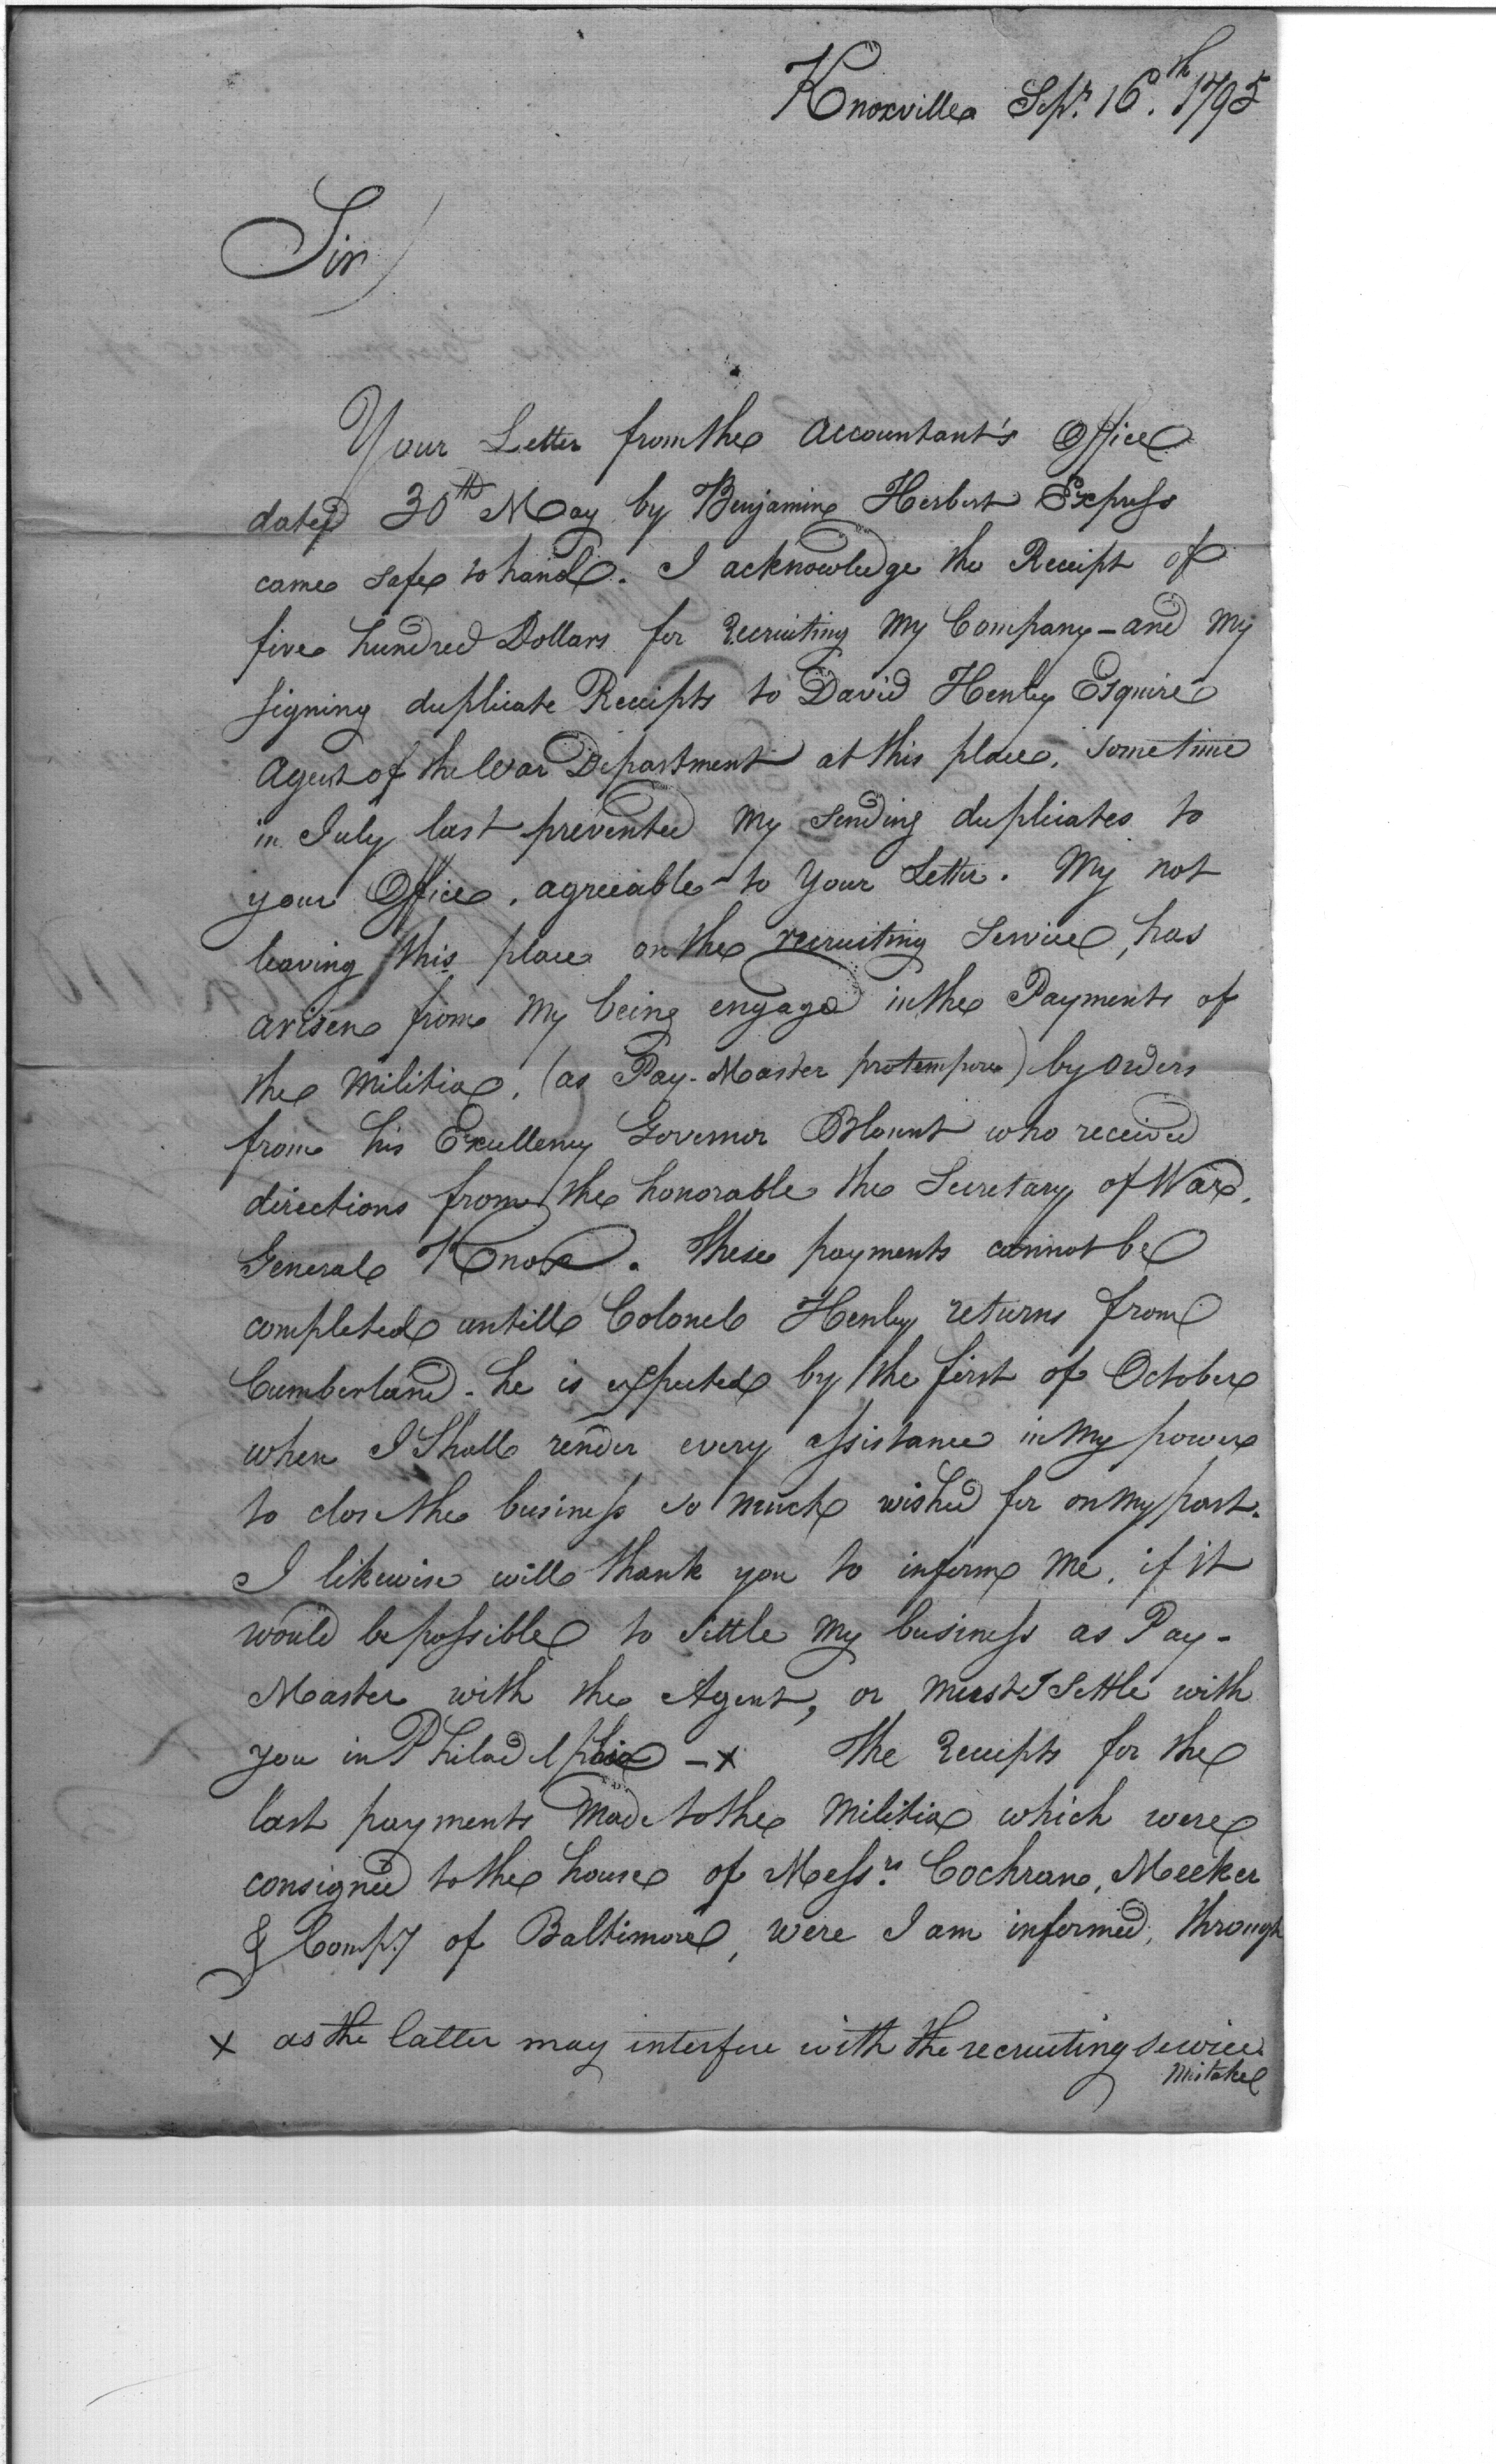 Knoxville Sepr. 16th. 1795
Sir
Your Letter from the Accountant's Office
dated 30th May by Benjamin Herbert Express
came safe to hand. I acknowledge the Receipt of
five hundred Dollars for Recruiting My Company - and My
signing duplicate Receipts to David Henley Esquire
Agent of the War Department at this place, sometime
in July last prevented My sending duplicates to
your Office, agreeable to Your Letter. My not
leaving this place on the recruiting Service, has
arisen from My being engaged in the Payments of
the Militia, (as Pay-Master protempore) by orders
from his Excellency Governor Blount who received
directions from the honorable the Secretary of War,
General Knox. These payments cannot be
completed untill Colonel Henley returns from
Cumberland - he is expected by the first of October
when I Shall render every assistance in My power
to close the business so much wished for on My part.
I likewise will thank you to inform Me, if it
would be possible to Settle My business as Pay-
Master with the Agent, or Must I Settle with
you in Philadelphia - x The Receipts for the
last payments Made to the Militia which were
consigned to the house of Messrs. Cochran, Meeker
& Compy of Baltimore, were I am informed, through
x as the latter may interfere with the recruiting service.
Mistake